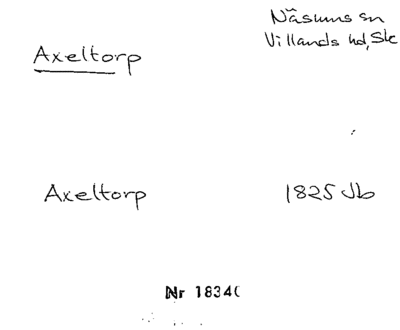 Axeltorp
Näsums sn
Villands hd, Sk
Axeltorp
1825 Jb
Nr 1834